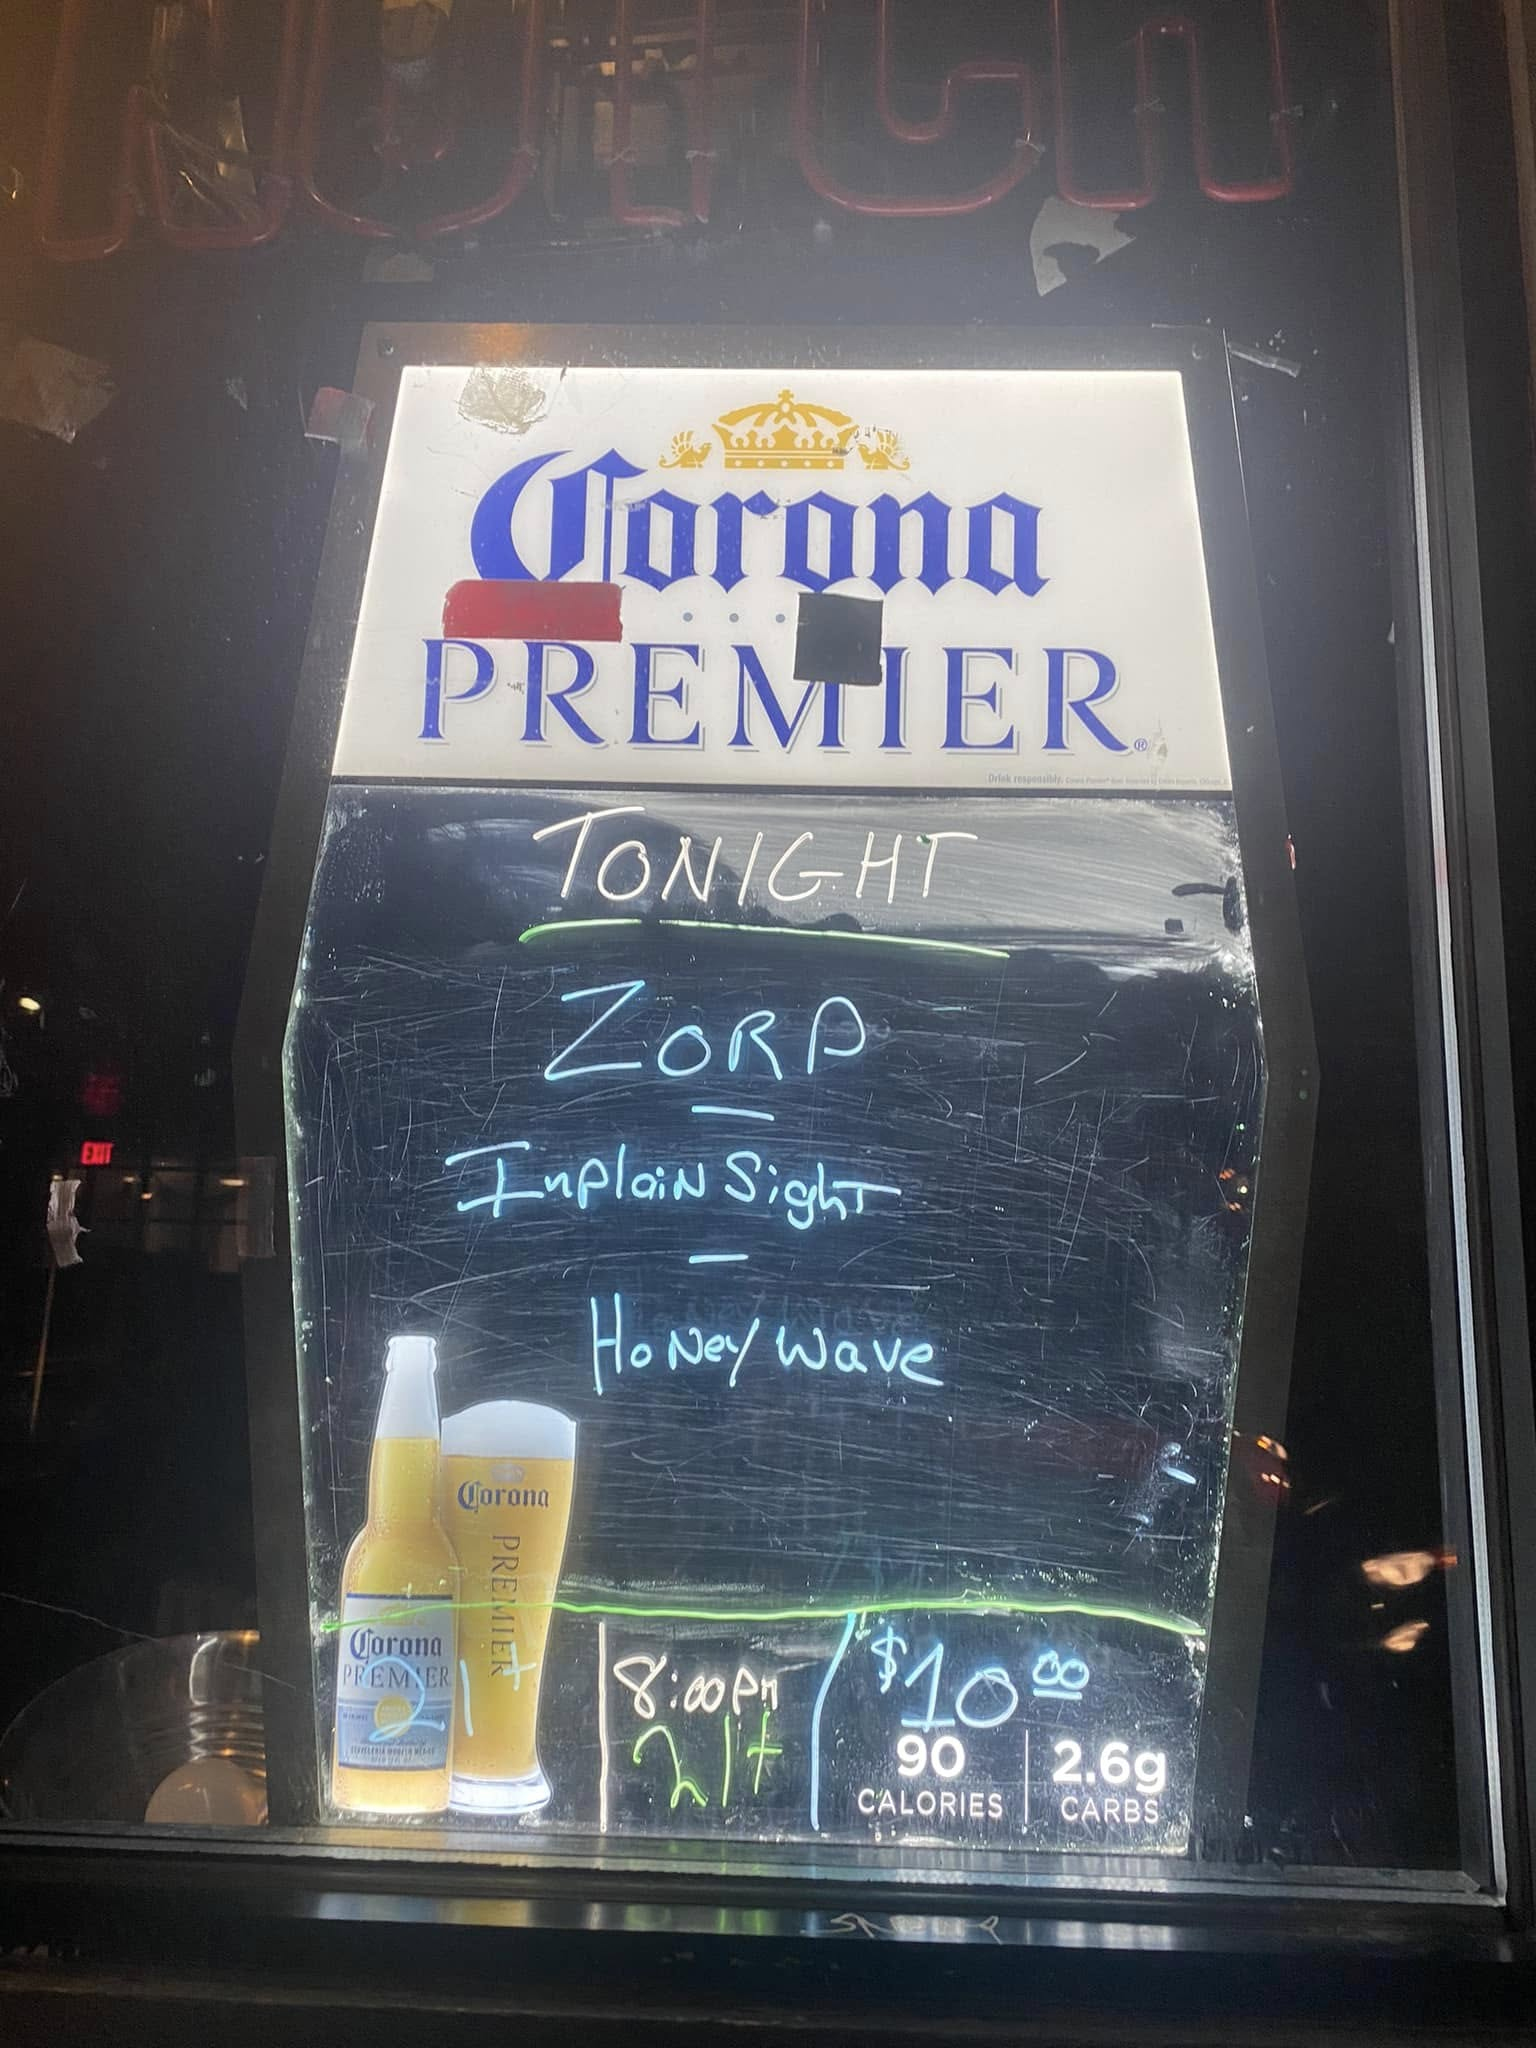 Corona
PREMIER®
Drink responsibly.
TONIGHT
ZORP
—
InplaiN Sight
—
HoNey Wave
EXIT
Corona
PREMIER
Corona
PREMIER
21+
8:00 PM
21+
$10 00
90
CALORIES
2.6g
CARBS